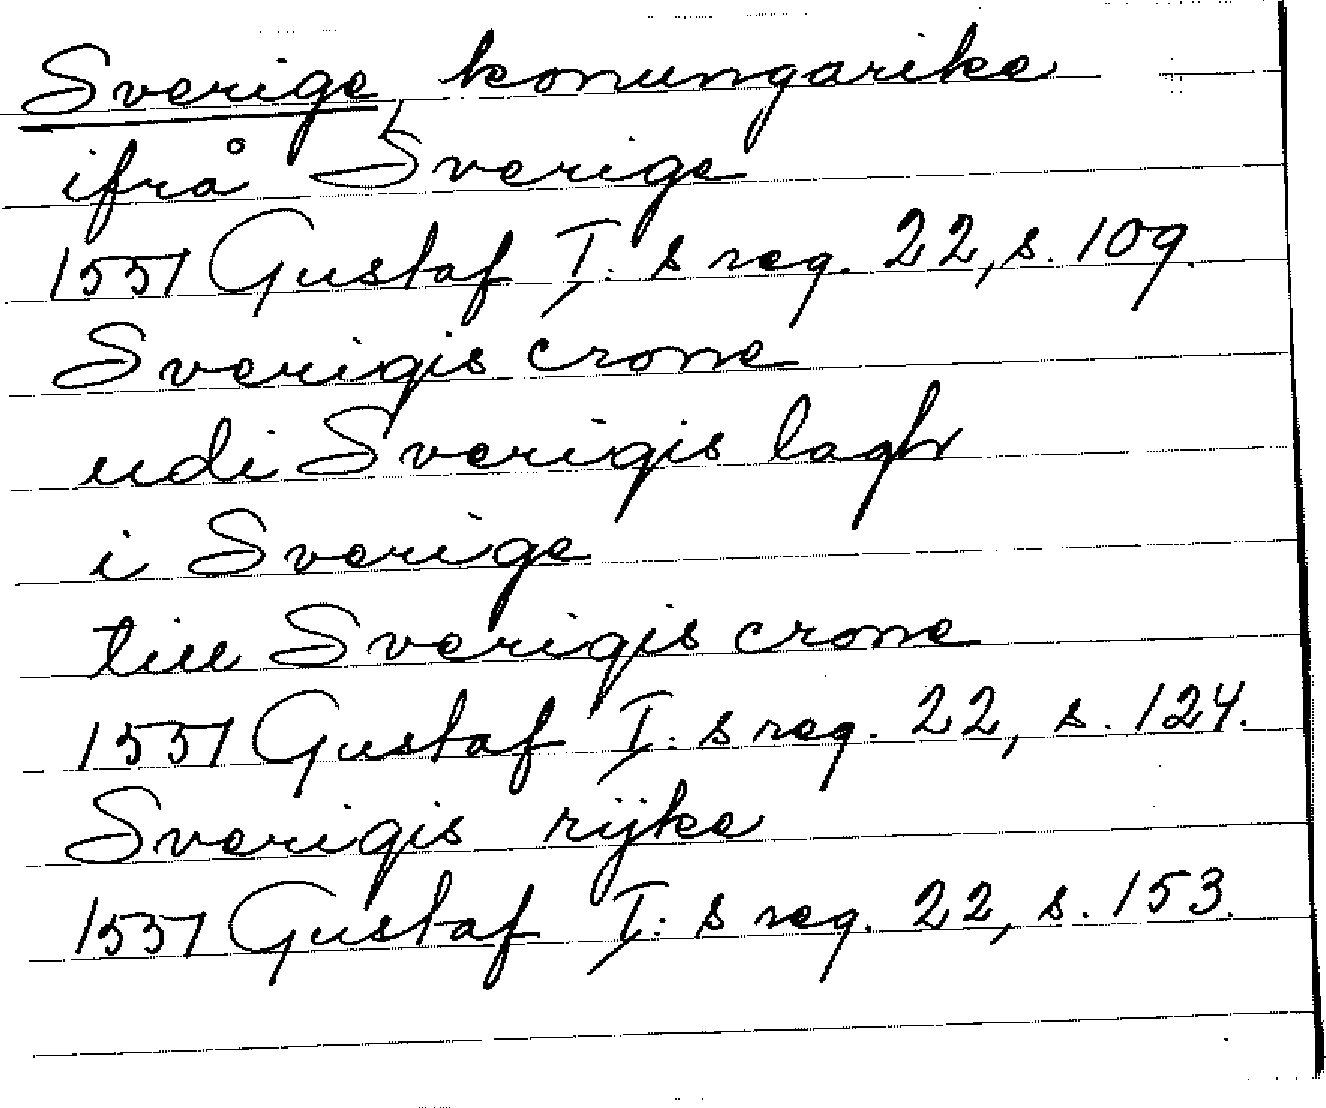 Sverige, konungarike
ifrå Sverige
1551 Gustaf I:s reg. 22, s. 109.
Sverigis crone
udi Sverigis lagh
i Sverige
till Sverigis crone
1551 Gustaf I:s reg. 22, s. 124.
Sverigis rijke
1551 Gustaf I:s reg. 22, s. 153.